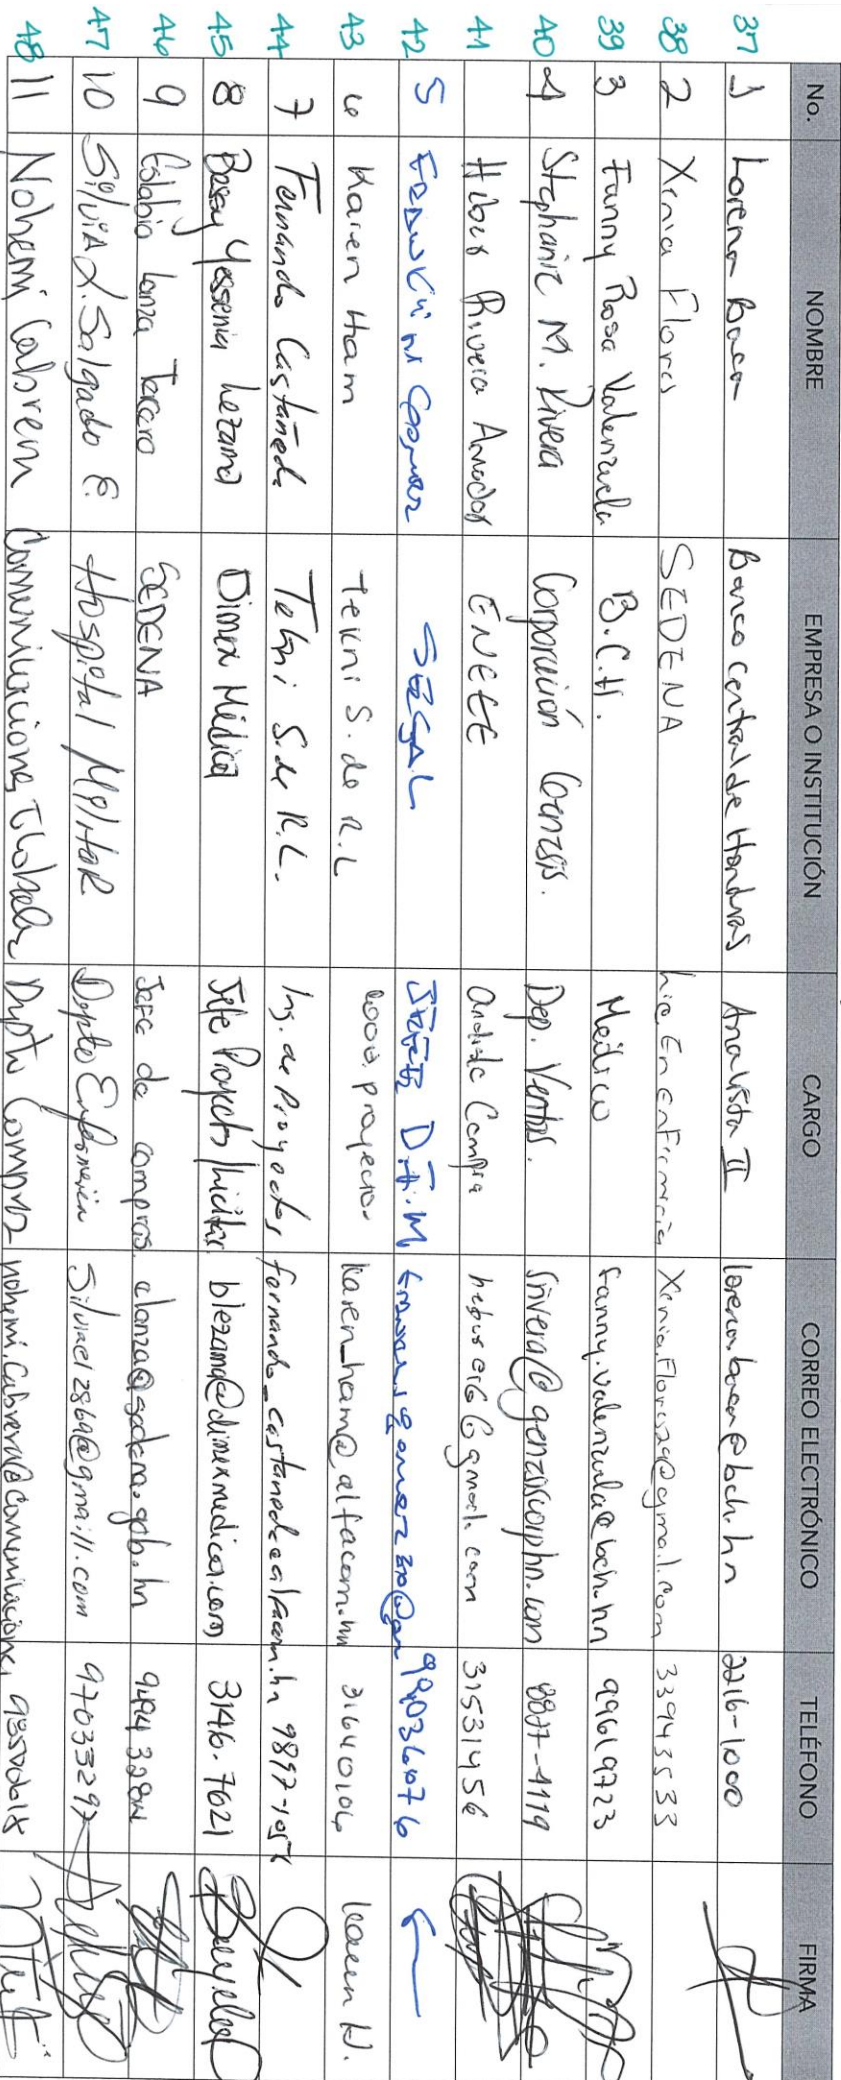 No. NOMBRE EMPRESA O INSTITUCIÓN CARGO CORREO ELECTRÓNICO TELÉFONO FIRMA
37 1 Lorena Baca Banco Central de Honduras Analista II lorena.baca@bch.hn 2216-1000
38 2 Xenia Flores SEDENA Lic. En enfermeria Xenia.Flores29@gmail.com 33943533
39 3 Fanny Rosa Valenzuela B.C.H. Médico fanny.valenzuela@bch.hn 99619723
40 4 Stephanie M. Rivera Corporación Genesis. Dep. Ventas. srivera@genesiscorphn.com 8877-4119
41 Heber Rivera Amador ENEE Compra 31531456
42 5 D.A.M 99036076
43 6 Karen Ham Tekni S. de R.L Coord. proyectos karen_ham@alfacom.hn 31640106 Karen H.
44 7 Fernando Castañeda Tekni S. de R.L. Ing. de Proyectos fernando_castaneda@alfacom.hn
45 8 Bessy Yessenia Lezama Dimex Médica Jefe Proyecto/licitac. blezama@dimexmedica.com 3146-7621
46 9 Lanza Tercero SEDENA Jefe de compras. elanza@sedena.gob.hn 9494 3284
47 10 Silvia L. Salgado E. Hospital Militar Depto Enfermería 97033297
48 11 Nohemi Cabrera Comunicaciones Globales Depto Compras